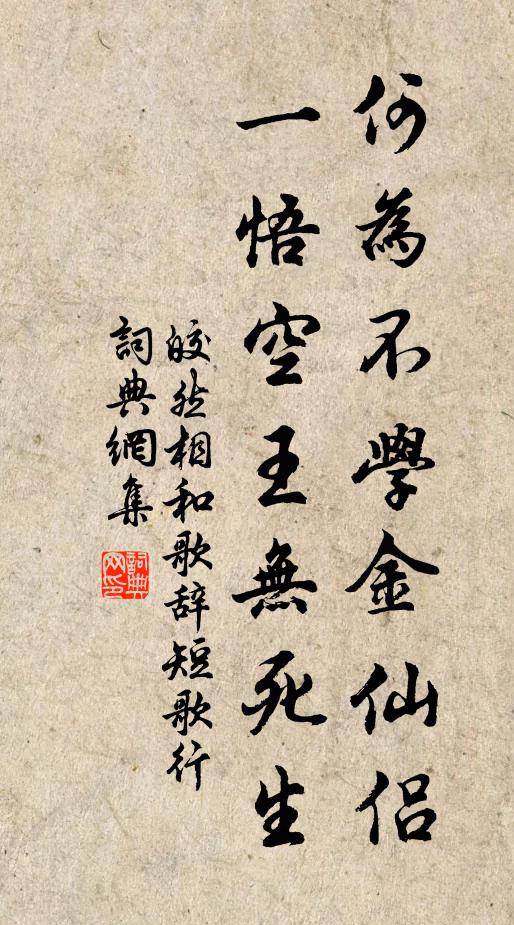 何為不學金仙侣
一悟空王無死生
皎然相和歌辞短歌行
詞典網集
詞典网印